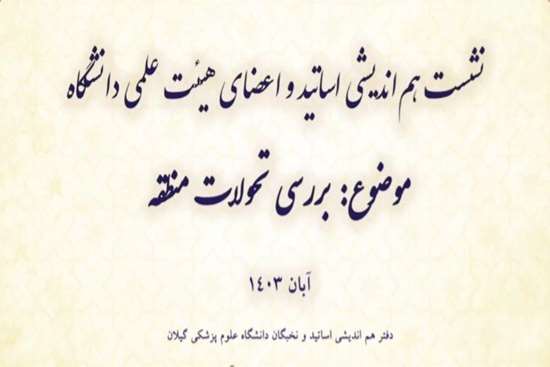 نشست هم اندیشی اساتید و اعضای هیئت علمی دانشگاه
موضوع: بررسی تحولات منطقه
آبان ۱۴۰۳
دفتر هم اندیشی اساتید و نخبگان دانشگاه علوم پزشکی گیلان